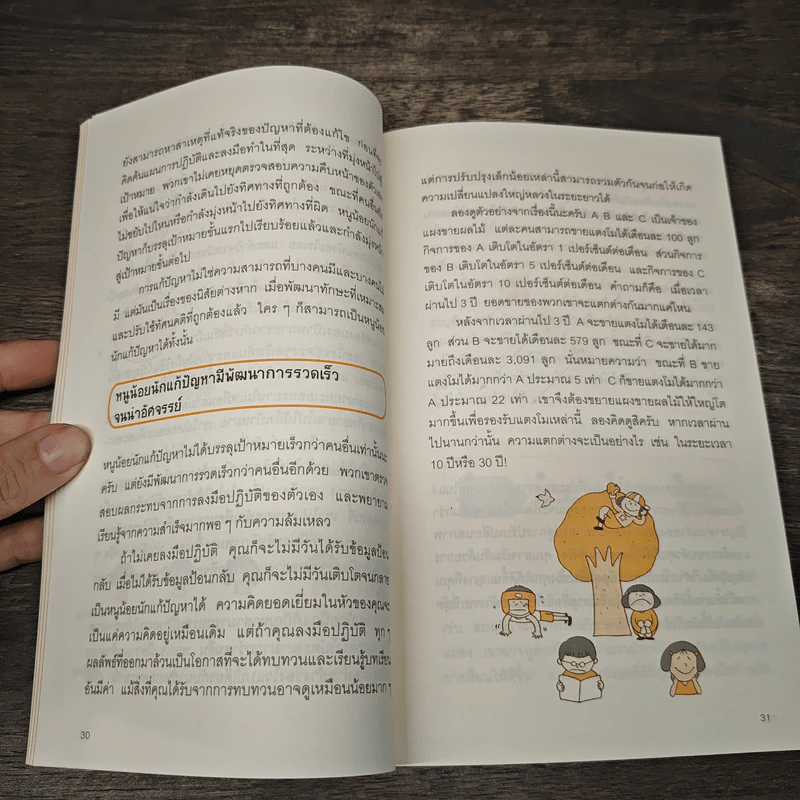 ยังสามารถหาสาเหตุที่แท้จริงของปัญหาที่ต้องแก้ไข ก่อนที่จะ
คิดค้นแผนการปฏิบัติและลงมือทำในที่สุด ระหว่างที่มุ่งหน้าไปสู่
เป้าหมาย พวกเขาไม่เคยหยุดตรวจสอบความคืบหน้าของตัวเอง
เพื่อให้แน่ใจว่ากำลังเดินไปยังทิศทางที่ถูกต้อง ขณะที่คนอื่นยัง
ไม่ขยับไปไหนหรือกำลังมุ่งหน้าไปยังทิศทางที่ผิด หนูน้อยนักแก้
ปัญหาก็บรรลุเป้าหมายชั้นแรกไปเรียบร้อยแล้วและกำลังมุ่งหน้า
สู่เป้าหมายชั้นต่อไป
การแก้ปัญหาไม่ใช่ความสามารถที่บางคนมีและบางคนไม่
มี แต่มันเป็นเรื่องของนิสัยต่างหาก เมื่อพัฒนาทักษะที่เหมาะสม
และปรับใช้ทัศนคติที่ถูกต้องแล้ว ใคร ๆ ก็สามารถเป็นหนูน้อย
นักแก้ปัญหาได้ทั้งนั้น
หนูน้อยนักแก้ปัญหามีพัฒนาการรวดเร็ว
จนน่าอัศจรรย์
หนูน้อยนักแก้ปัญหาไม่ได้บรรลุเป้าหมายเร็วกว่าคนอื่นเท่านั้นนะ
ครับ แต่ยังมีพัฒนาการรวดเร็วกว่าคนอื่นอีกด้วย พวกเขาตรวจ
สอบผลกระทบจากการลงมือปฏิบัติของตัวเอง และพยายาม
เรียนรู้จากความสำเร็จมากพอ ๆ กับความล้มเหลว
ถ้าไม่เคยลงมือปฏิบัติ คุณก็จะไม่มีวันได้รับข้อมูลป้อน
กลับ เมื่อไม่ได้รับข้อมูลป้อนกลับ คุณก็จะไม่มีวันเติบโตจนกลาย
เป็นหนูน้อยนักแก้ปัญหาได้ ความคิดยอดเยี่ยมในหัวของคุณจะ
เป็นแค่ความคิดอยู่เหมือนเดิม แต่ถ้าคุณลงมือปฏิบัติ ทุก ๆ
ผลลัพธ์ที่ออกมาล้วนเป็นโอกาสที่จะได้ทบทวนและเรียนรู้บทเรียน
อันมีค่า แม้สิ่งที่คุณได้รับจากการทบทวนอาจดูเหมือนน้อยมาก ๆ
30
แต่การปรับปรุงเล็กน้อยเหล่านี้สามารถรวมตัวกันจนก่อให้เกิด
ความเปลี่ยนแปลงใหญ่หลวงในระยะยาวได้
ลองดูตัวอย่างจากเรื่องนี้นะครับ A B และ C เป็นเจ้าของ
แผงขายผลไม้ แต่ละคนสามารถขายแตงโมได้เดือนละ 100 ลูก
กิจการของ A เติบโตในอัตรา 1 เปอร์เซ็นต์ต่อเดือน ส่วนกิจการ
ของ B เติบโตในอัตรา 5 เปอร์เซ็นต์ต่อเดือน และกิจการของ C
เติบโตในอัตรา 10 เปอร์เซ็นต์ต่อเดือน คำถามก็คือ เมื่อเวลา
ผ่านไป 3 ปี ยอดขายของพวกเขาจะแตกต่างกันมากแค่ไหน
หลังจากเวลาผ่านไป 3 ปี A จะขายแตงโมได้เดือนละ 143
ลูก ส่วน B จะขายได้เดือนละ 579 ลูก ขณะที่ C จะขายได้มาก
มายถึงเดือนละ 3,091 ลูก นั่นหมายความว่า ขณะที่ B ขาย
แตงโมได้มากกว่า A ประมาณ 5 เท่า C ก็ขายแตงโมได้มากกว่า
A ประมาณ 22 เท่า เขาจึงต้องขยายแผงขายผลไม้ให้ใหญ่โต
มากขึ้นเพื่อรองรับแตงโมเหล่านี้ ลองคิดดูสิครับ หากเวลาผ่าน
ไปนานกว่านั้น ความแตกต่างจะเป็นอย่างไร เช่น ในระยะเวลา
10 ปีหรือ 30 ปี!
31